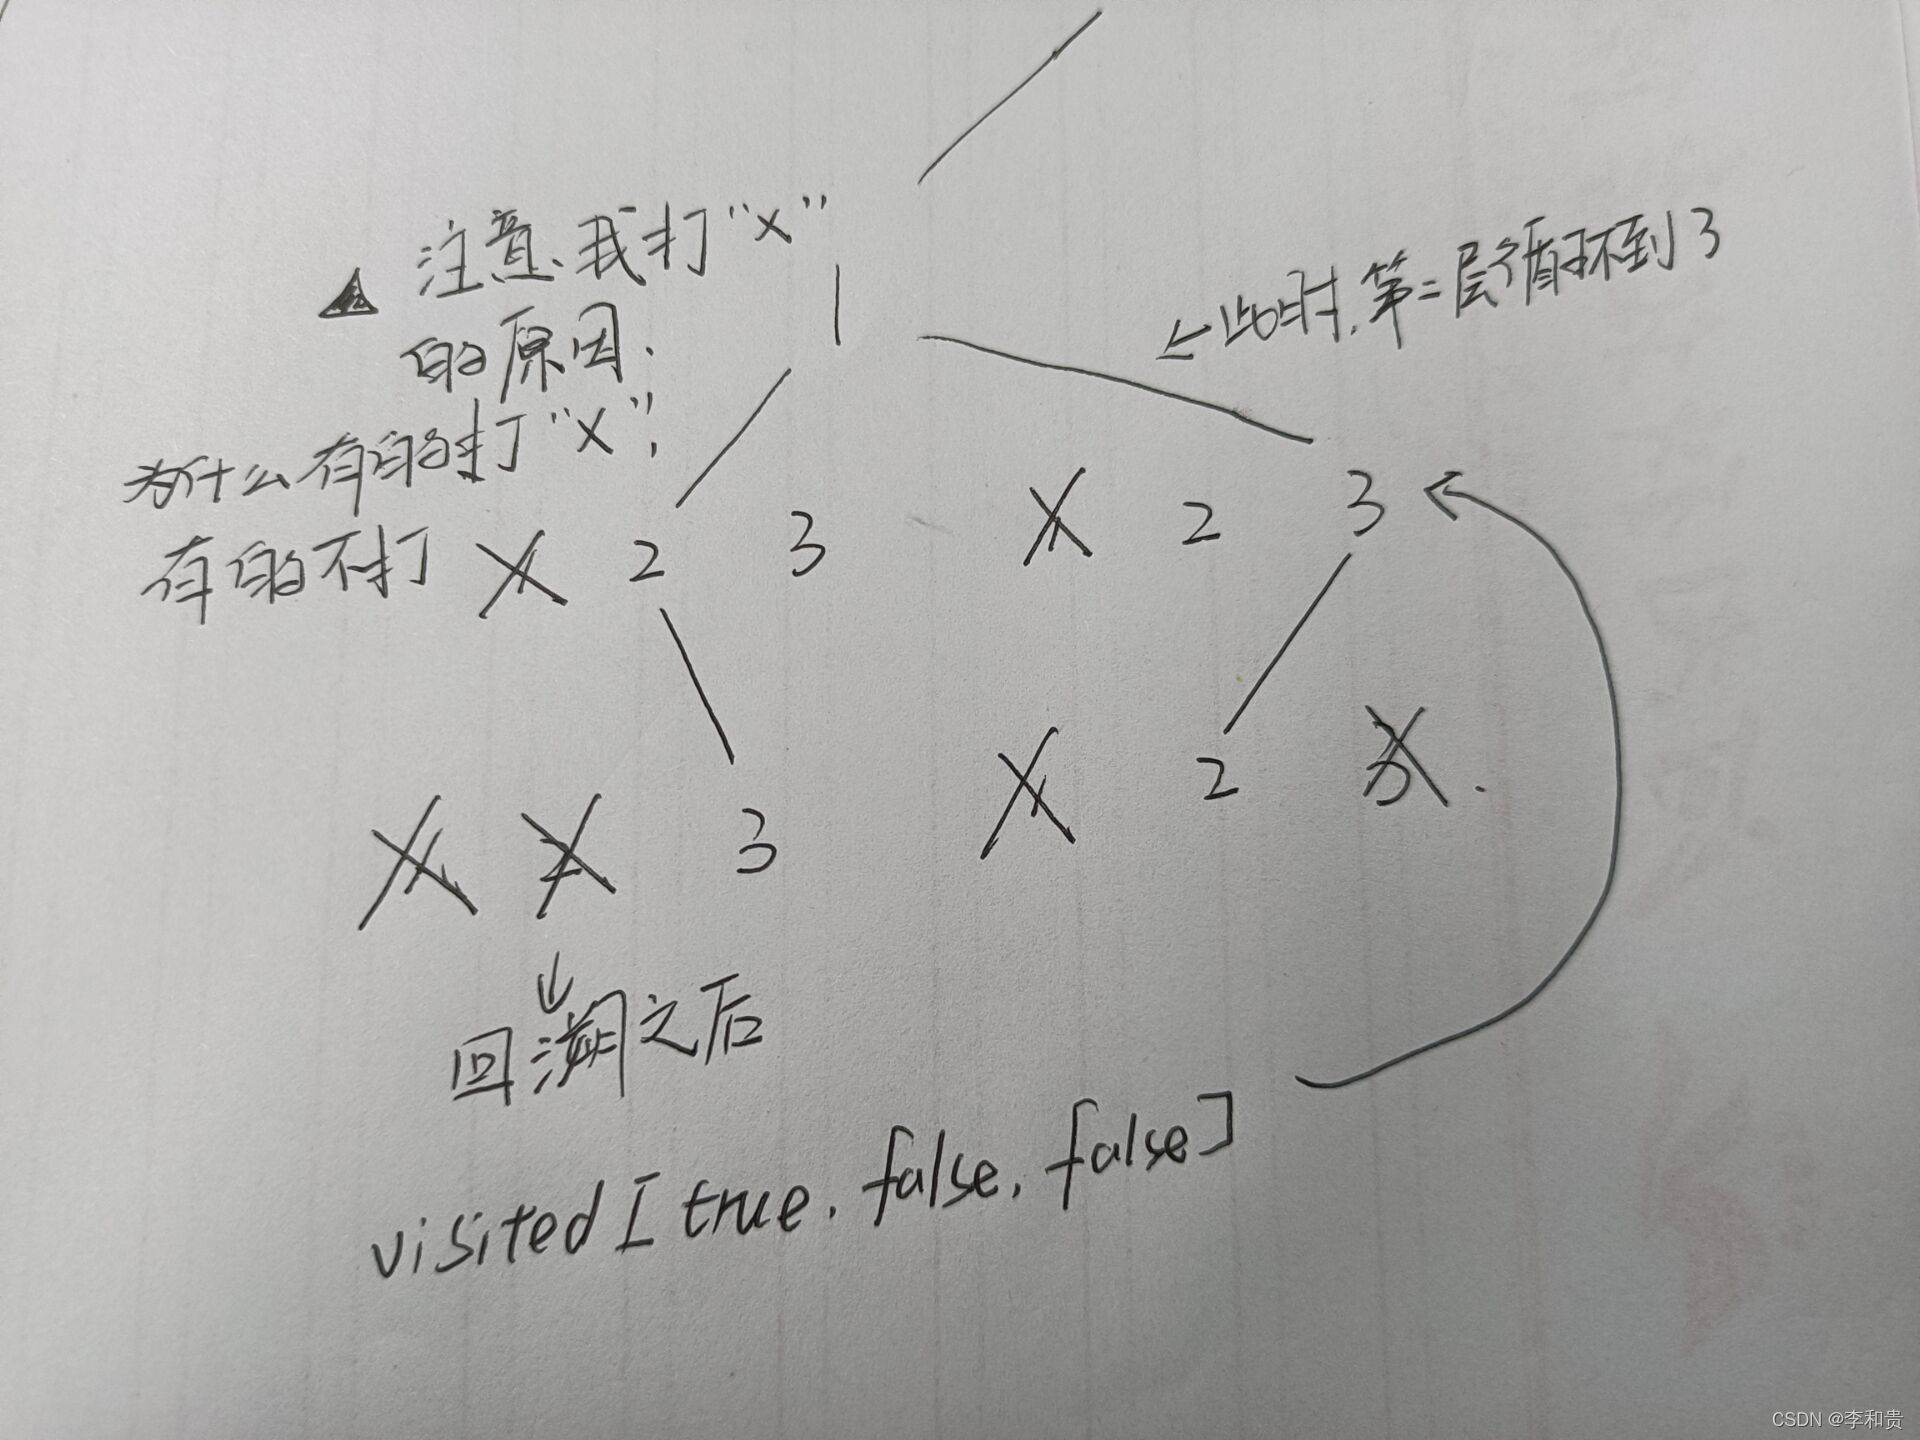 注意、我打“×”
的原因.
为什么有的打“×”,
有的不打
←此时,第二层循环到3
1
1 2 3
1 2 3
1 2 3
1 2 3.
↓
回溯之后
visited [true, false, false]
CSDN @李和贵